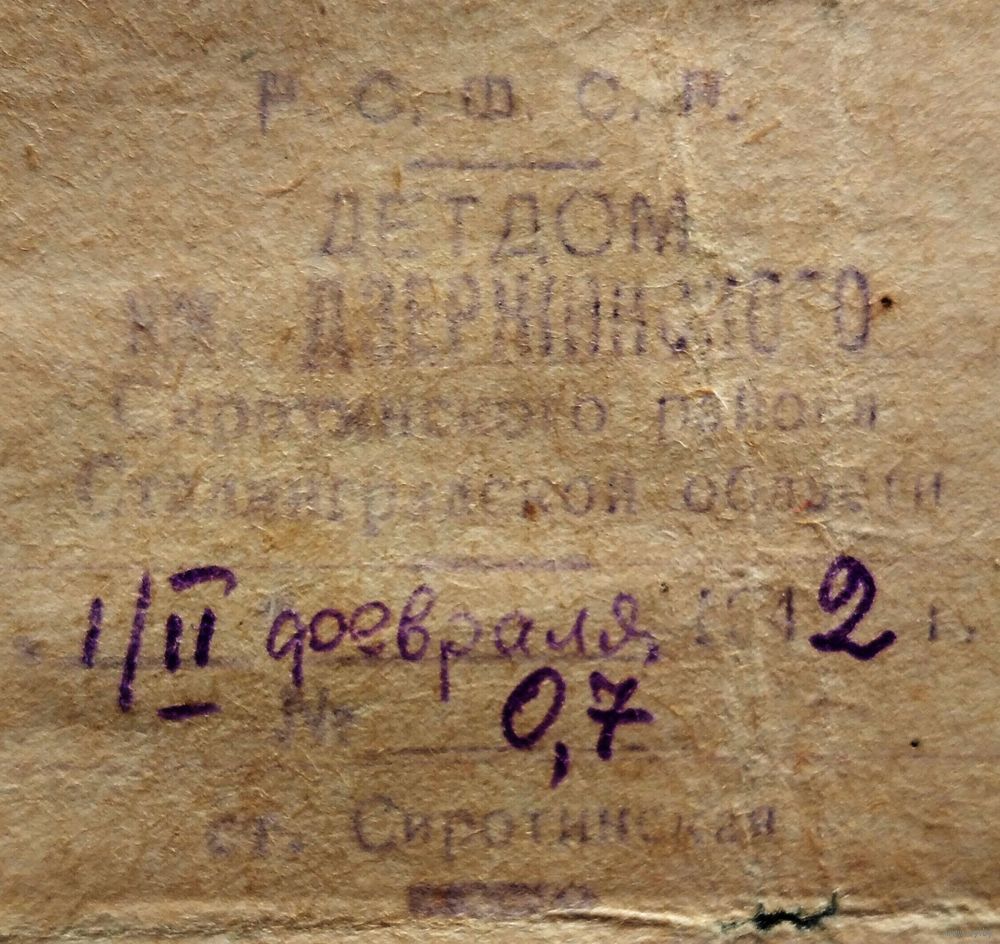 Р. С. Ф. С. Р.
ДЕТДОМ
им. ДЗЕРЖИНСКОГО
Сиротинского района
Сталинградской области
1/II февраля 1942 г.
№ 0,7
ст. Сиротинская